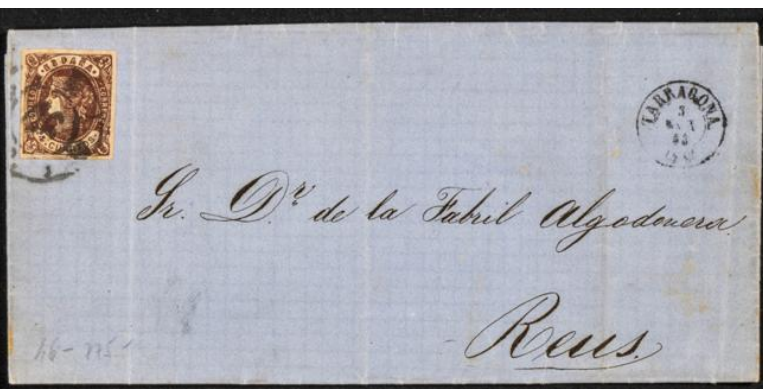 ESPAÑA
4 CUARTOS
TARRAGONA
3
63
Sr. Dr. de la Fabril Algodonera.
Reus.